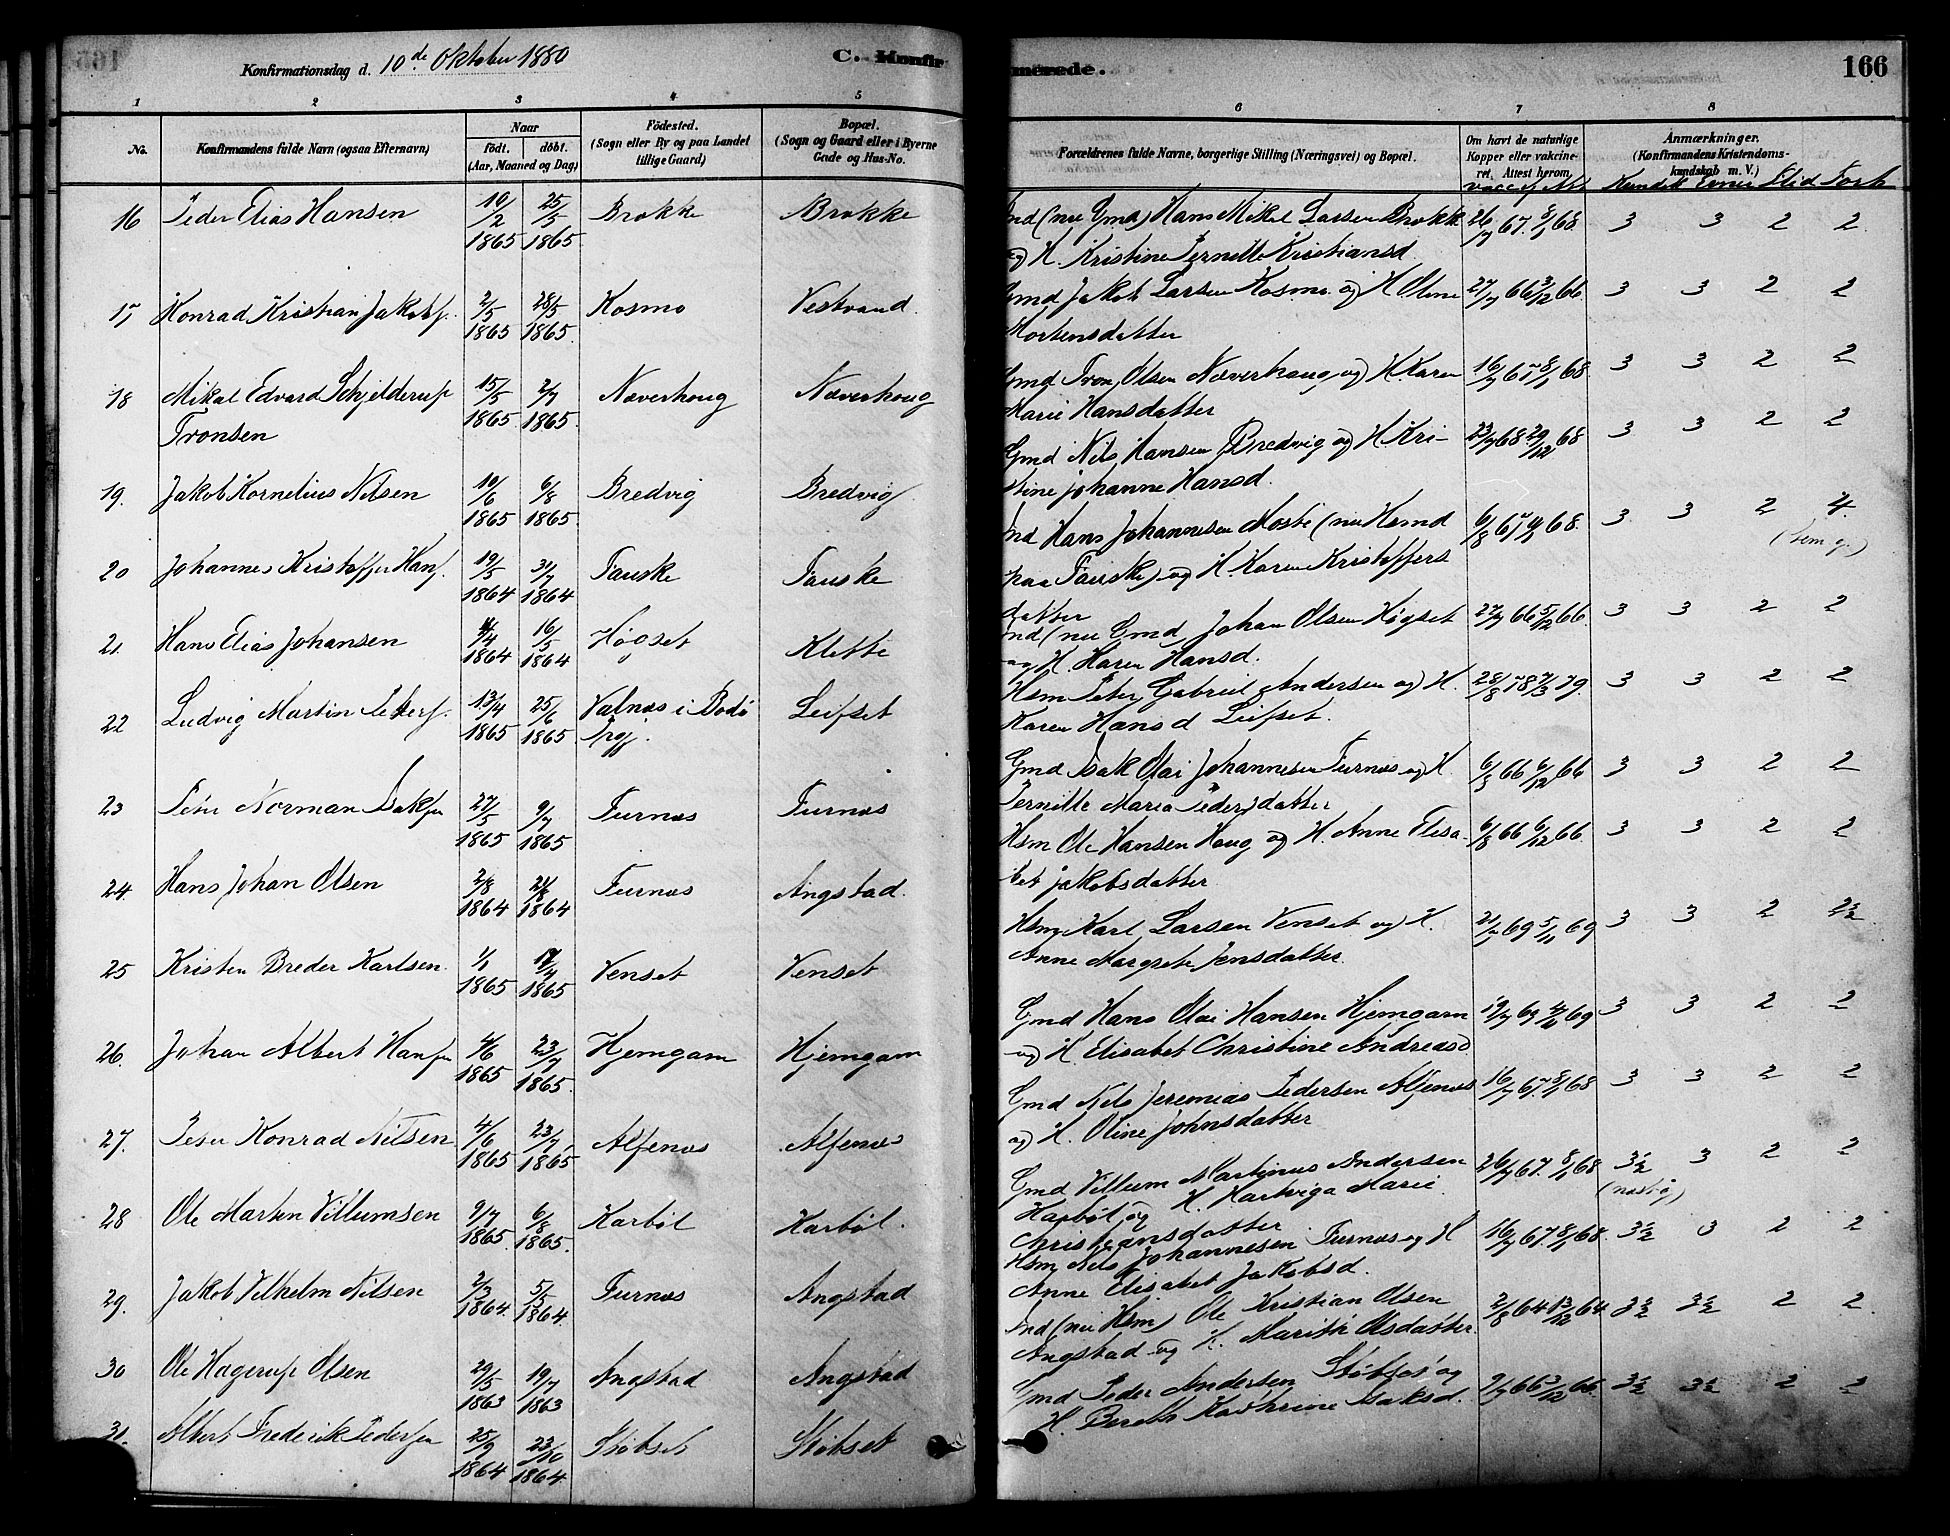 Konfirmationsdag d. 10de Oktober 1880
C. Konfir
merede.
166
1 2 3 4 5 6 7 8
No.
Konfirmandens fulde Navn (ogsaa Efternavn)
Naar
født. døbt.
(Aar, Maaned og Dag)
Fødested.
(Sogn eller By og paa Landet
tillige Gaard)
Bopæl.
(Sogn og Gaard eller i Byerne
Gade og Hus-No.
Forældrenes fulde Navne, borgerlige Stilling (Næringsvei) og Bopæl.
Om havt de naturlige
Kopper eller vakcine-
ret, Attest herom.
Anmærkninger.
(Konfirmandens Kristendoms-
kundskab m. V.)
Kundsk Evner Flid
16 Peder Elias Hansen 10/2 1865 25/5 1865 Brokke Brokke
Ind (nu Gmd) Hans Mikal Larsen Brokke 26/7 67. 8/1 68. 3 3 2 2.
og H. Kristine Pernille Kristiansd.
17 Konrad Kristian Jakobs. 2/5 1865 28/5 1865 Kosmo Vestvand.
Gmd Jakob Larsen Kosmo og H Oline 27/7 66 3/12 66. 3 3 2 2
Mortensdatter
18 Mikal Edvard Schjelderup 15/5 1865 2/7 1865. Næverhoug Næverhoug
Tronsen
Gmd Tron Olsen Næverhoug og H. Karen 16/7 67 8/1 68. 3 3 2 2
Marie Hansdatter
19. Jakob Kornelius Nilsen 10/6 1865 6/8 1865. Bredvig Bredvig
Gmd Nils Hansen Bredvig og H Kri- 23/7 68. 29/12 68 3 3 2 2
stine Johanne Hansd.
20 Johannes Kristoffer Hans. 19/5 1864 31/7 1864 Fauske Fauske
Ind Hans Johannesen Moste (nu Hsmd 3. 3 2 4.
paa Fauske) og H. Karen Kristoffers
datter
21. Hans Elias Johansen 1864 16/5 1864 Høgset Klette
Ind (nu Gmd Johan Olsen Høgset 27/7 66 5/12 66. 3 3 2 2
og H. Karen Hansd.
22 Ludvig Martin Peters. 13/4 1865 25/6 1865 Valnæs i Bodø Leifset
Hsm Peter Gabriel Andersen og H. 28/8 78 7/3 79. 3 3 2 2
Karen Hansd Leifset.
23 Peter Norman Isaksen 27/5 1865 9/7 1865 Furnæs Furnæs
Gmd Isak Olai Johannesen Furnæs og H. 66 6/12 66 3 3 2 2
Pernille Maria Pedersdatter
24. Hans Johan Olsen 2/8 1864 21/8 1864 Furnæs Angstad.
Hsm Ole Hansen Haug og H. Anne Elisa- 6/8 66 6/12 66. 3 3 2 2
bet Jakobsdatter.
25 Kristen Breder Karlsen. 1/1 1865 17/4 1865 Venset Venset
Hsm Karl Larsen Venset og H. 21/7 69 5/11 69 3 3 2 2½
Anne Margrete Jensdatter.
26. Johan Albert Hansen 4/6 1865 23/7 1865. Hjemgam Hjemgam
Gmd Hans Olai Hansen Hjemgam 3 3 2 2
og H Elisabet Christine Andreasd
27. Peter Konrad Nilsen 4/6 1865 23/7 1865 Alfenæs Alfenæs
Gmd Nils Jeremias Pedersen Alfenæs 16/7 67. 8/1 68 3 3 2 2
og H. Oline Johnsdatter
28 Ole Martin Villumsen 9/7 1865. 6/8 1865. Karbøl Karbøl.
Gmd Villum Martinus Andersen 26/7 67. 8/1 68 3½ 3 2 2
Karbøl og H. Hartviga Marie
Christiansdatter
29. Jakob Vilhelm Nilsen 2/3 1864. 5/5 1864. Furnæs Angstad
Hsm Nils Johannesen Furnæs og H 16/7 67. 8/1 68. 3½ 3 2 2
Anne Elisabet Jakobsd.
30 Ole Hagerup Olsen 29/5 1863 19/7 1863 Angstad Angstad
Ind (nu Hsm) Ole Kristian Olsen 2/8 64 13/12 64. 3½ 3½ 2 2.
Angstad og H. Marith Olsdatter.
31. Albert Frederik Pedersen 25/9 1864 23/10 1864. Støbset Støbset
Gmd Peder Andersen Støbset og 3½ 3½ 2 2
H. Bereth Kathrine Isaksd.